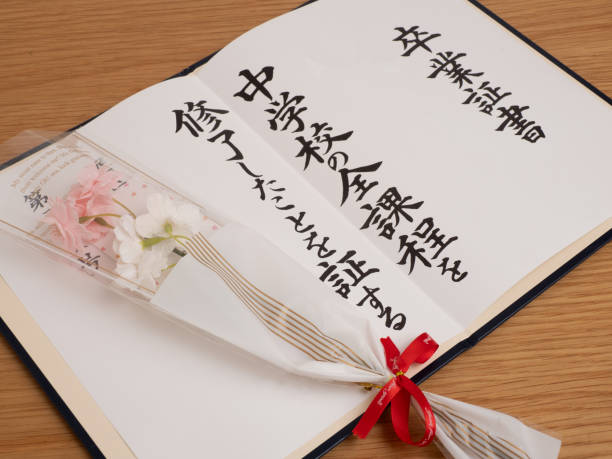 卒業証書
中学校の全課程を
修了したことを証する
第
号